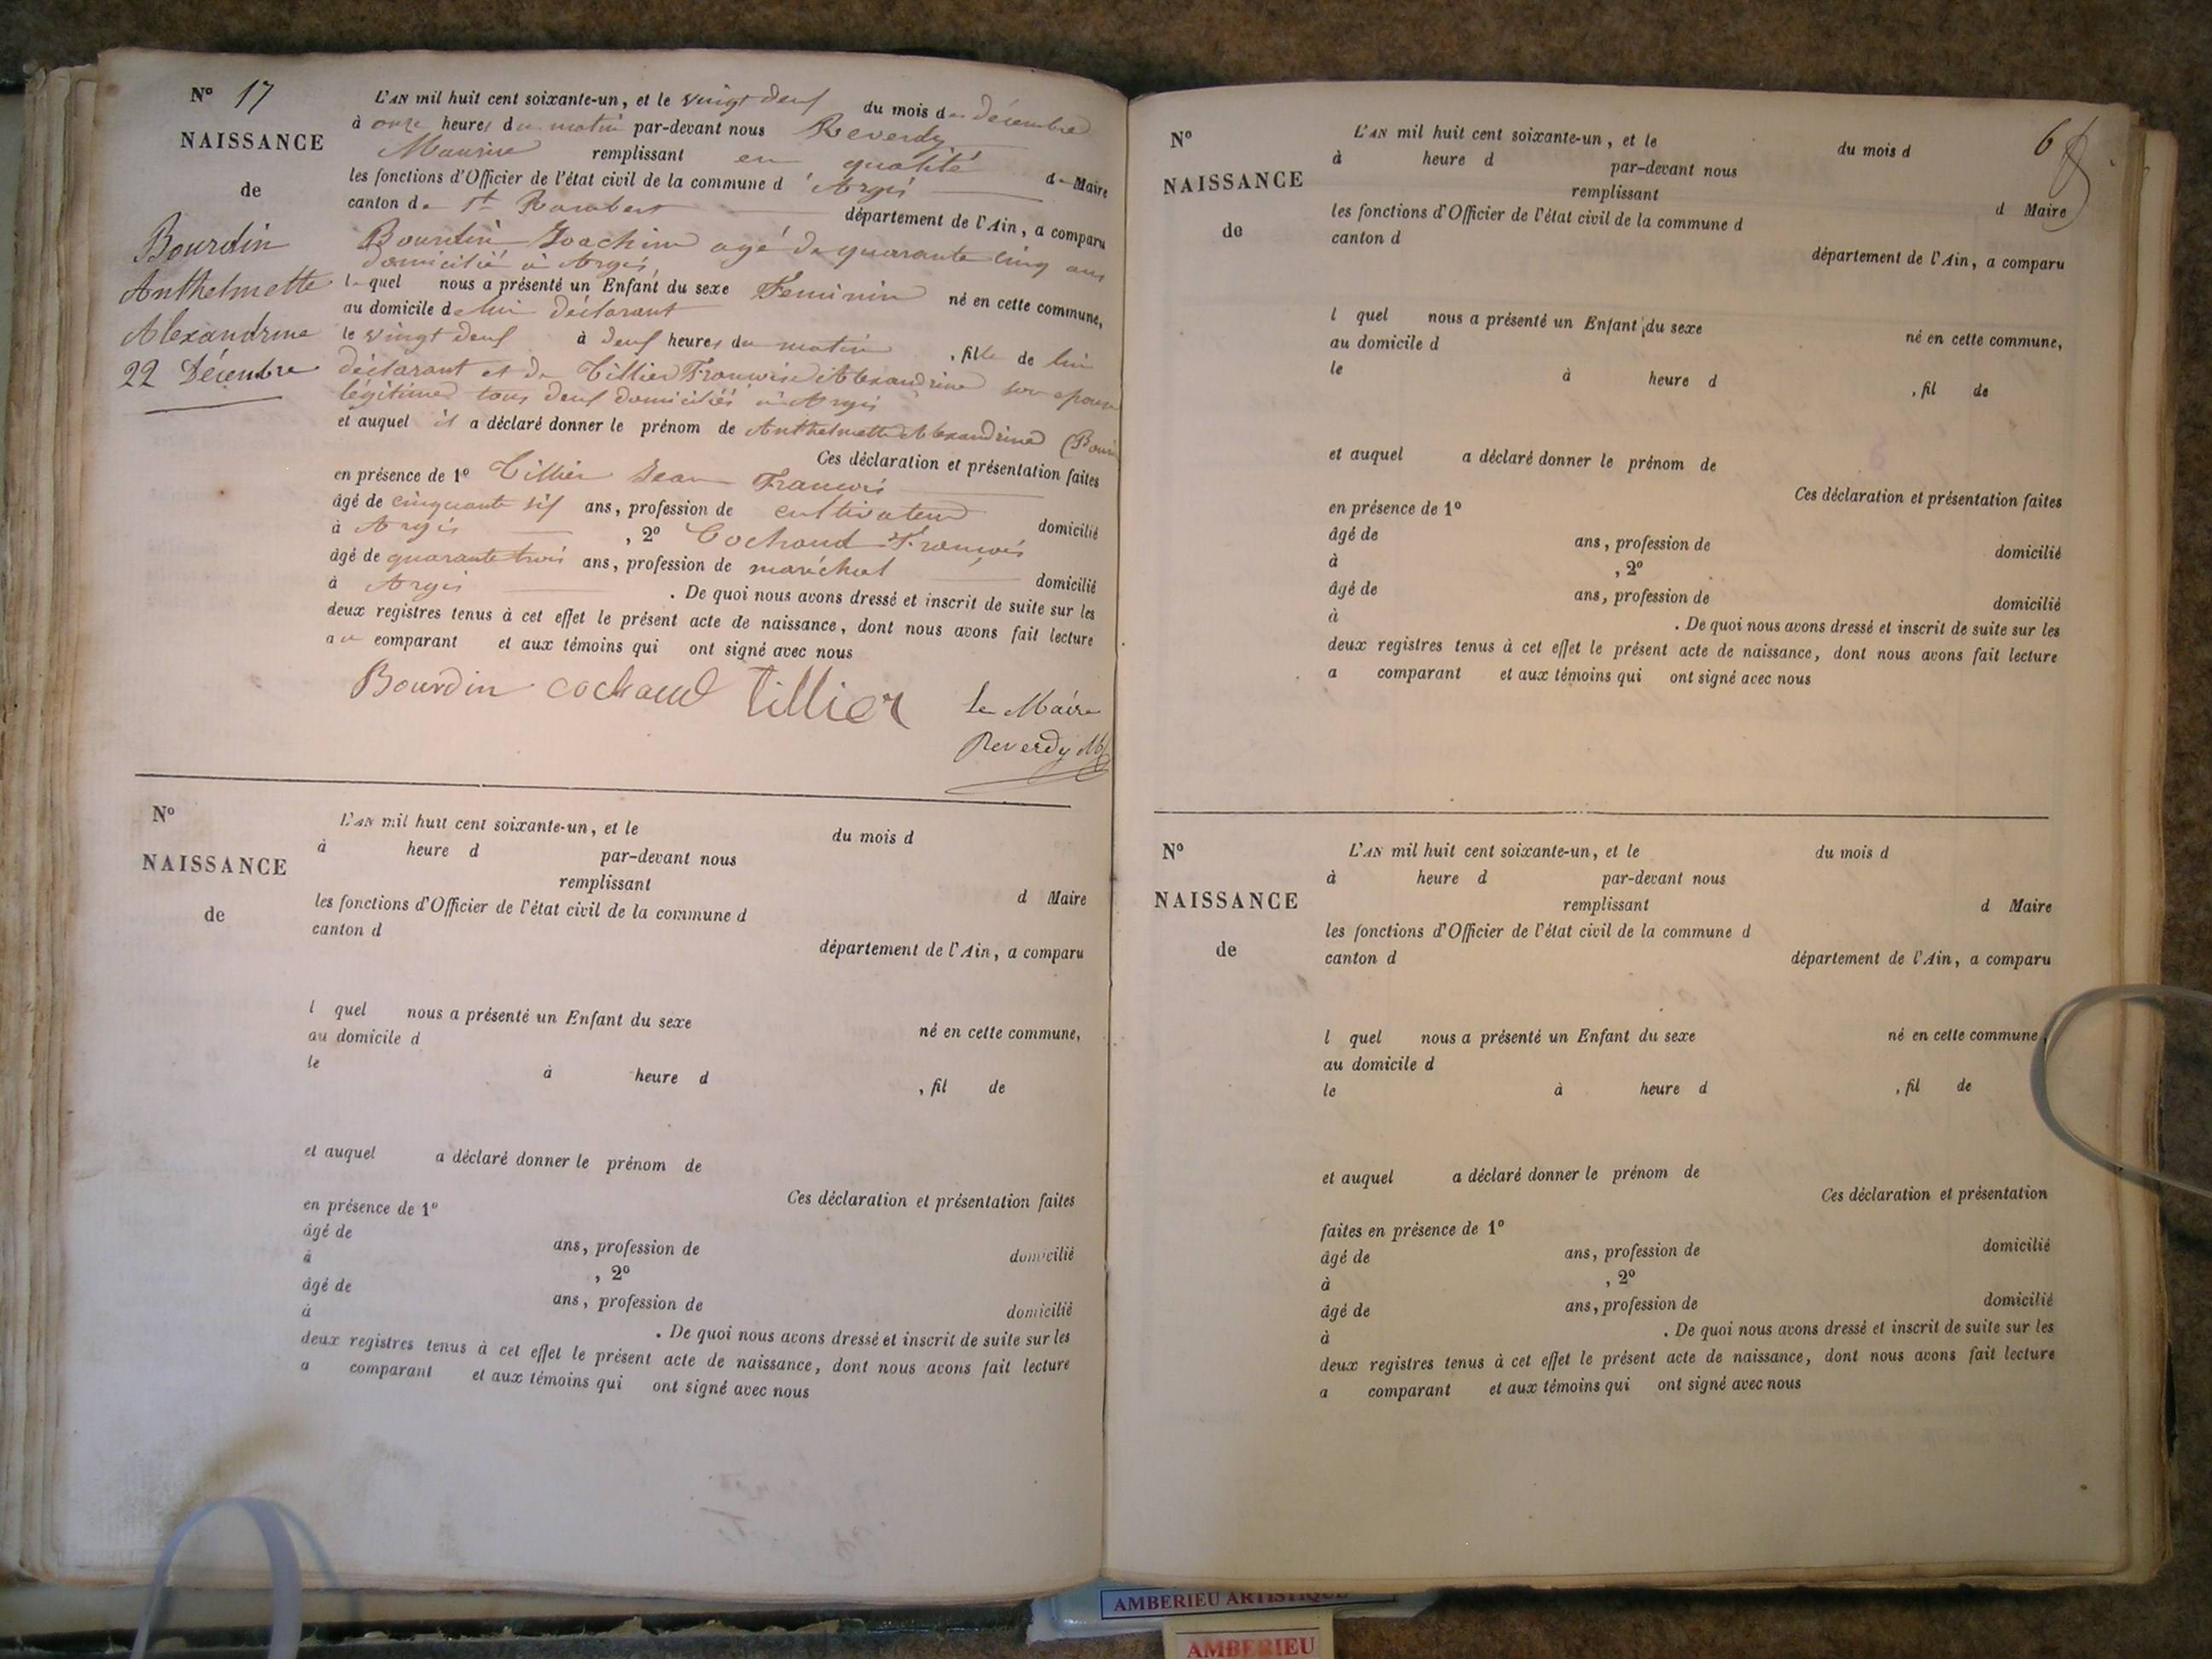 Nº 17
NAISSANCE
de
Bourdin
Anthelmette
Alexandrine
22 Décembre
L'AN mil huit cent soixante-un, et le vingt deux du mois de décembre
à onze heures du matin par-devant nous Reverdy
Maurice remplissant en qualité de Maire
les fonctions d'Officier de l'état civil de la commune d'Argis
canton de St Rambert département de l'Ain, a comparu
Bourdin Joachim agé de quarante cinq ans
domicilié à Argis
lequel nous a présenté un Enfant du sexe Feminin né en cette commune,
au domicile de lui déclarant
le vingt deux à deux heures du matin, fille de lui
déclarant et de Tillier Françoise Alexandrine son epouse
légitime tous deux domiciliés à Argis
et auquel il a déclaré donner le prénom de Anthelmette Alexandrine (Bour
Ces déclaration et présentation faites
en présence de 1º Tillier Jean François
âgé de cinquante six ans, profession de cultivateur domicilié
à Argis, 2º Cochaud François
âgé de quarante trois ans, profession de maréchal domicilié
à Argis. De quoi nous avons dressé et inscrit de suite sur les
deux registres tenus à cet effet le présent acte de naissance, dont nous avons fait lecture
au comparant et aux témoins qui ont signé avec nous
Bourdin cochaud tillier
Le Maire
Reverdy M
Nº
NAISSANCE
de
L'AN mil huit cent soixante-un, et le du mois d
à heure d par-devant nous
remplissant d Maire
les fonctions d'Officier de l'état civil de la commune d
canton d département de l'Ain, a comparu
l quel nous a présenté un Enfant du sexe né en cette commune,
au domicile d
le à heure d , fil de
et auquel a déclaré donner le prénom de
Ces déclaration et présentation faites
en présence de 1º
âgé de ans, profession de domicilié
à , 2º
âgé de ans, profession de domicilié
à . De quoi nous avons dressé et inscrit de suite sur les
deux registres tenus à cet effet le présent acte de naissance, dont nous avons fait lecture
a comparant et aux témoins qui ont signé avec nous
6
Nº
NAISSANCE
de
L'AN mil huit cent soixante-un, et le du mois d
à heure d par-devant nous
remplissant d Maire
les fonctions d'Officier de l'état civil de la commune d
canton d département de l'Ain, a comparu
l quel nous a présenté un Enfant du sexe né en cette commune,
au domicile d
le à heure d , fil de
et auquel a déclaré donner le prénom de
Ces déclaration et présentation faites
en présence de 1º
âgé de ans, profession de domicilié
à , 2º
âgé de ans, profession de domicilié
à . De quoi nous avons dressé et inscrit de suite sur les
deux registres tenus à cet effet le présent acte de naissance, dont nous avons fait lecture
a comparant et aux témoins qui ont signé avec nous
Nº
NAISSANCE
de
L'AN mil huit cent soixante-un, et le du mois d
à heure d par-devant nous
remplissant d Maire
les fonctions d'Officier de l'état civil de la commune d
canton d département de l'Ain, a comparu
l quel nous a présenté un Enfant du sexe né en cette commune,
au domicile d
le à heure d , fil de
et auquel a déclaré donner le prénom de
Ces déclaration et présentation
faites en présence de 1º
âgé de ans, profession de domicilié
à , 2º
âgé de ans, profession de domicilié
à . De quoi nous avons dressé et inscrit de suite sur les
deux registres tenus à cet effet le présent acte de naissance, dont nous avons fait lecture
a comparant et aux témoins qui ont signé avec nous
AMBERIEU ARTISTIQUE
AMBERIEU